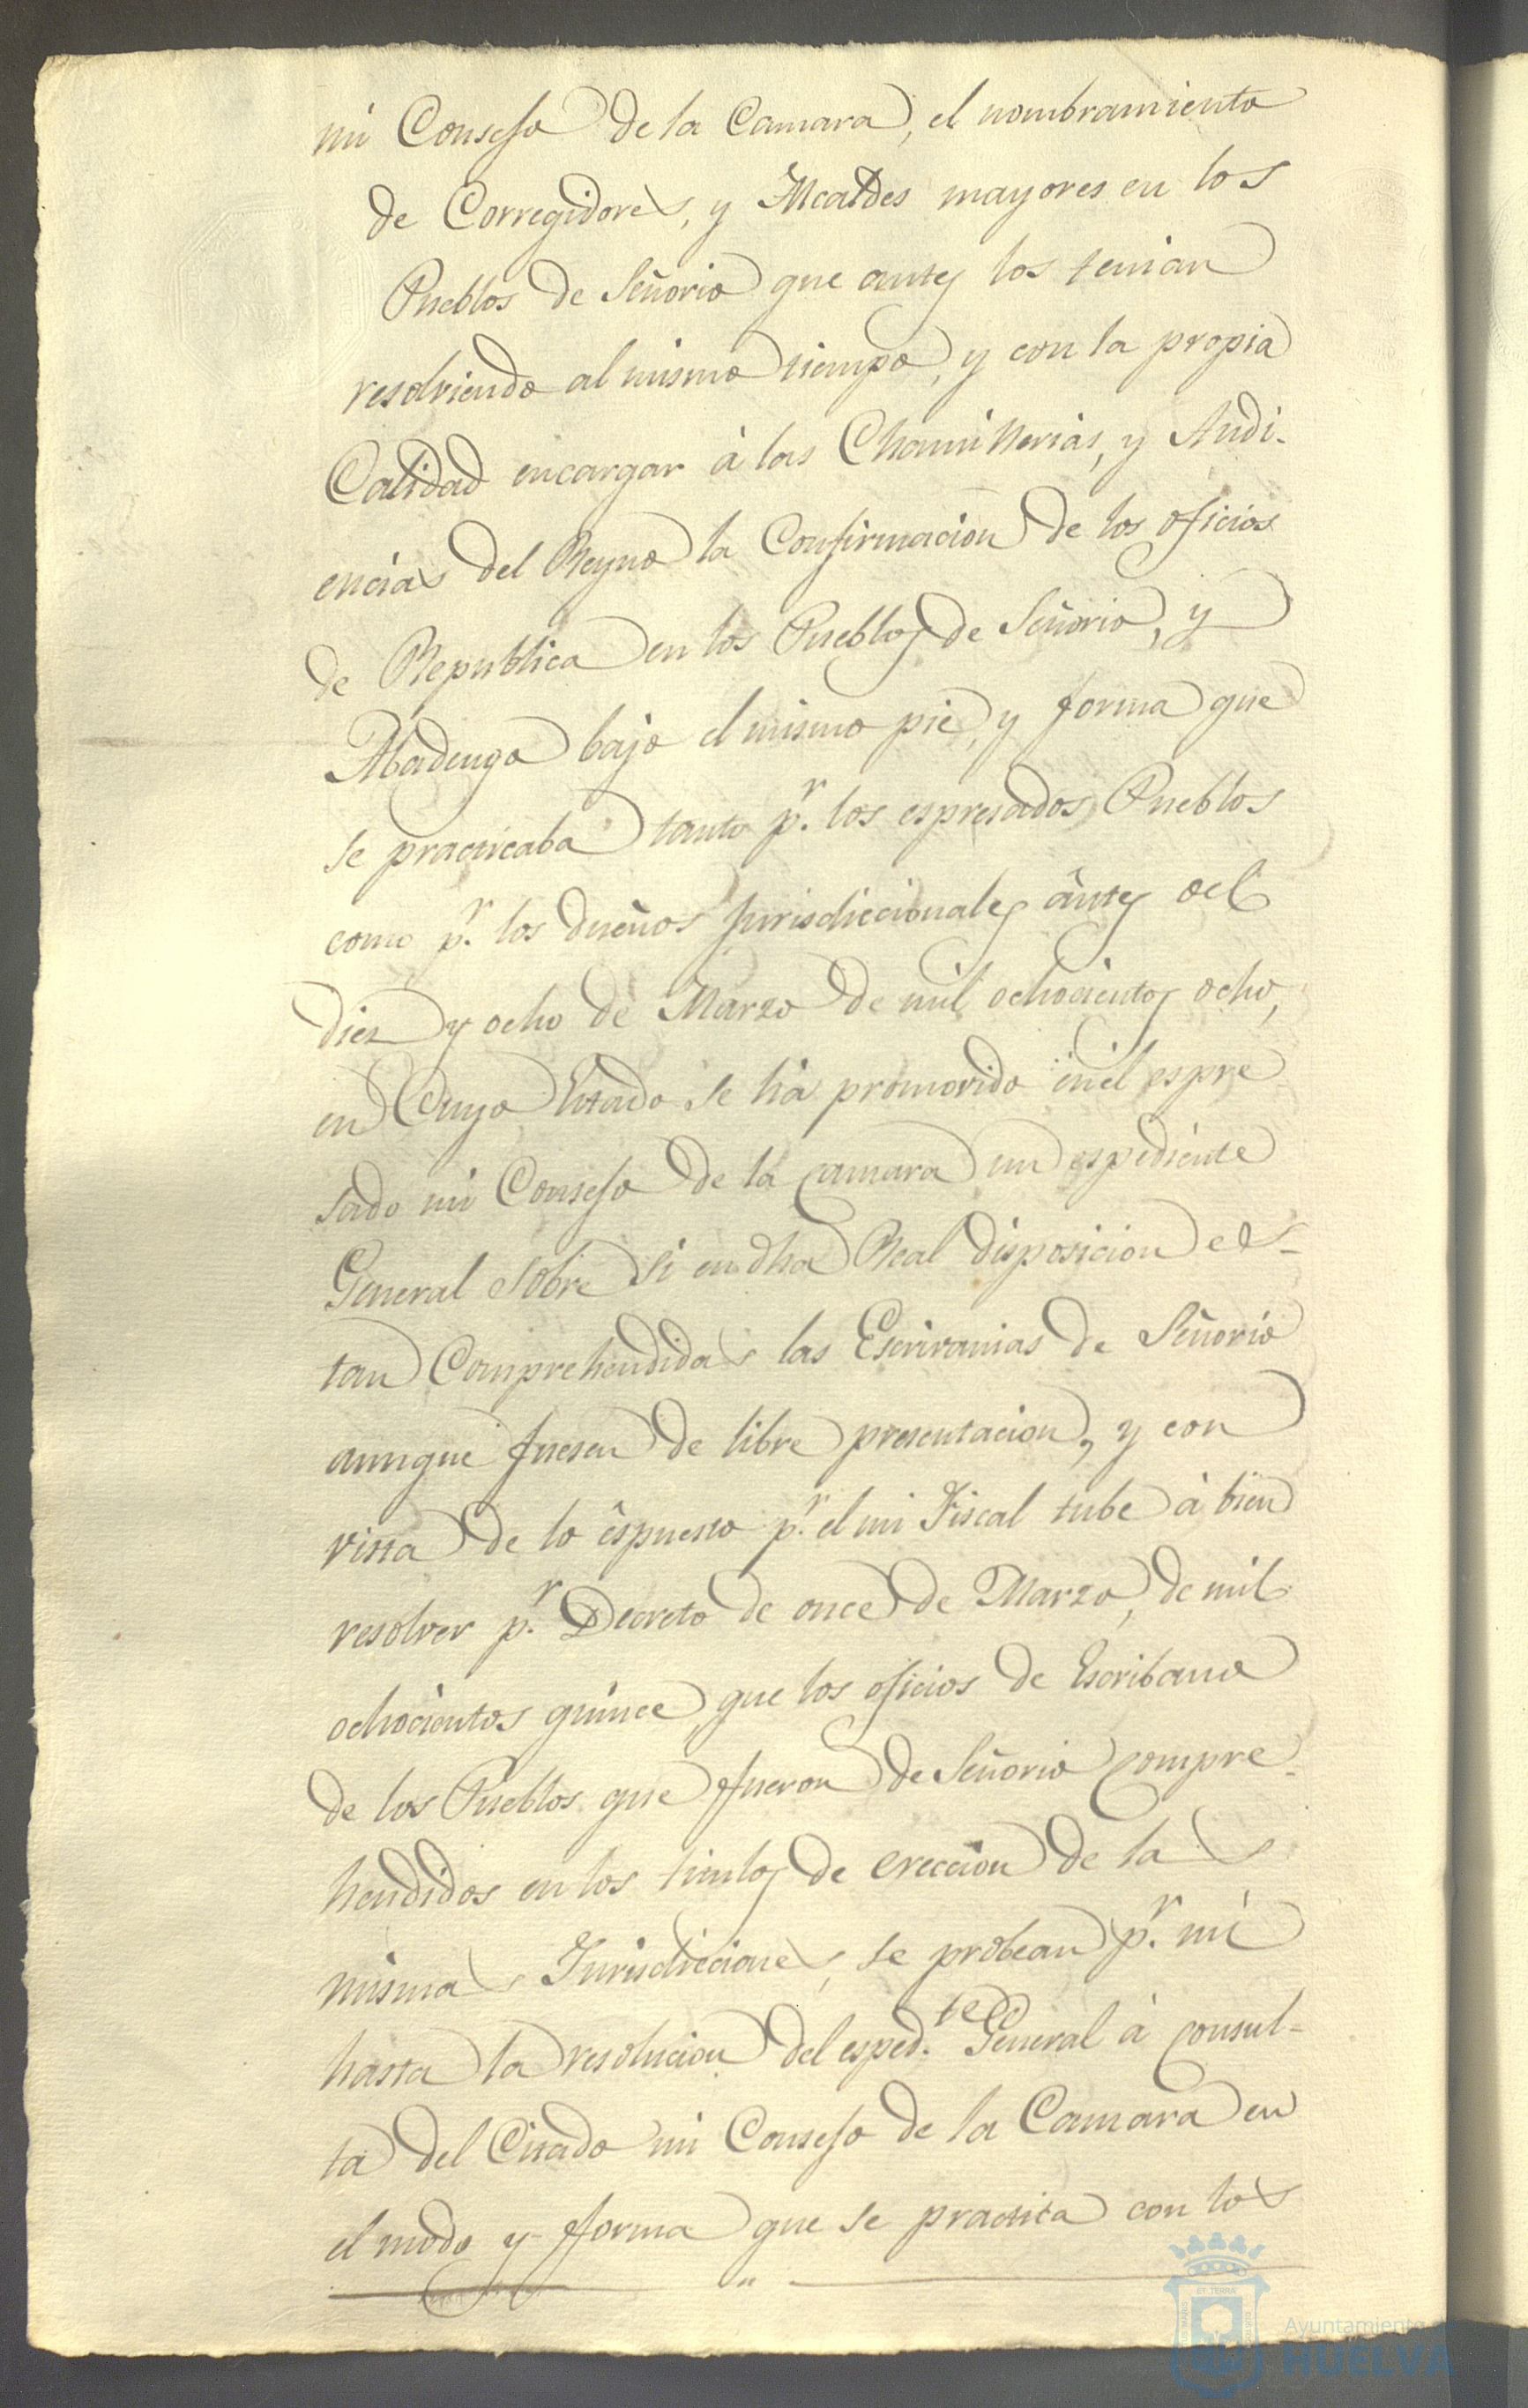 mi Consejo de la Camara, el nombramiento
de Corregidores, y Alcaldes mayores en los
Pueblos de Señorio que antes los tenian
resolviendo al mismo tiempo, y con la propia
Calidad encargar à las Chancillerias, y Audi-
encias del Reyno la Confirmacion de los oficios
de Republica en los Pueblos de Señorio, y
Abadengo bajo el mismo pie, y forma que
se practicaba tanto p.r los espresados Pueblos
como p.r los dueños Jurisdiccionales àntes del
diez y ocho de Marzo de mil ochocientos ocho,
en Cuyo Estado se hà promovido en el espre
sado mi Consejo de la Camara un espediente
General sobre si en dha Real disposicion es-
tan Comprehendidas las Escrivanias de Señorio
aunque fuesen de libre presentacion, y con
vista de lo espuesto p.r el mi Fiscal tube à bien
resolver p.r Decreto de once de Marzo, de mil
ochocientos quince, que los oficios de Escribano
de los Pueblos que fueron de Señorio compre-
hendidos en los titulos de ereccion de las
mismas Jurisdicciones, se probean p.r mi
hasta la resolucion del esped.te General à consul-
ta del Citado mi Consejo de la Camara en
el modo y forma que se practica con los
Ayuntamiento
HUELVA